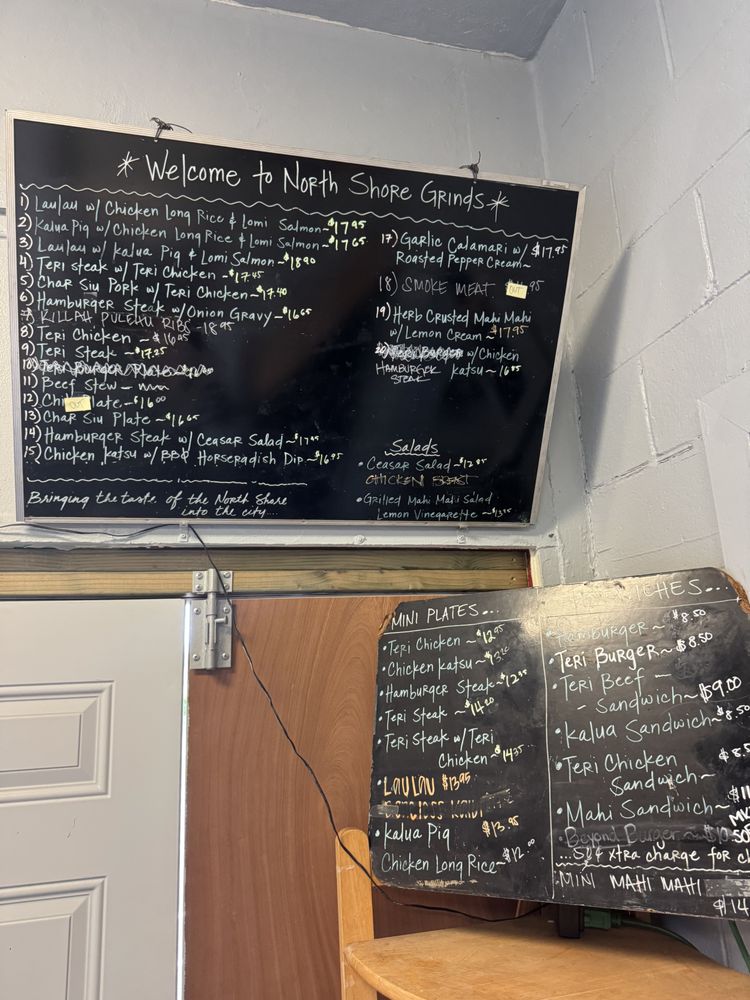 * Welcome to North Shore Grinds *
1) Laulau w/ Chicken Long Rice & Lomi Salmon ~ $17.95
2) Kalua Pig w/ Chicken Long Rice & Lomi Salmon ~ $17.65
3) Laulau w/ Kalua Pig & Lomi Salmon ~ $18.90
4) Teri Steak w/ Teri Chicken ~ $17.45
5) Char Siu Pork w/ Teri Chicken ~ $17.40
6) Hamburger Steak w/ Onion Gravy ~ $16.65
7) KILLAH PULEHU RIBS - 18.95
8) Teri Chicken ~ $16.95
9) Teri Steak ~ $17.25
10) Teri Burger Plate
11) Beef Stew ~
12) Chi OUT late ~ $16.00
13) Char Siu Plate ~ $16.65
14) Hamburger Steak w/ Ceasar Salad ~ $17.95
15) Chicken Katsu w/ BBQ Horseradish Dip ~ $16.95
Bringing the taste of the North Shore
into the city....
17) Garlic Calamari w/ $17.95
Roasted Pepper Cream ~
18) SMOKE MEAT OUT 95
19) Herb Crusted Mahi Mahi
w/ Lemon Cream ~ $17.95
20) w/ Chicken
HAMBURGER Katsu ~
STEAK
Salads
• Ceasar Salad ~ $12.85
CHICKEN BREAST
• Grilled Mahi Mahi Salad
Lemon Vinegarette ~
MINI PLATES...
• Teri Chicken ~ $12.95
• Chicken Katsu ~
• Hamburger Steak ~
• Teri Steak ~ $14.20
• Teri Steak w/ Teri
Chicken ~ $14.35
• LAULAU $13.95
• Kalua Pig $13.95
Chicken Long Rice ~ $12.00
• Hamburger ~ $8.50
• Teri Burger ~ $8.50
• Teri Beef -
- Sandwich ~ $9.00
• Kalua Sandwich ~ $8.50
• Teri Chicken
Sandwich ~
• Mahi Sandwich ~
• Beyond Burger ~ $10.50
...50¢ xtra charge for
MINI MAHI MAHI
$14